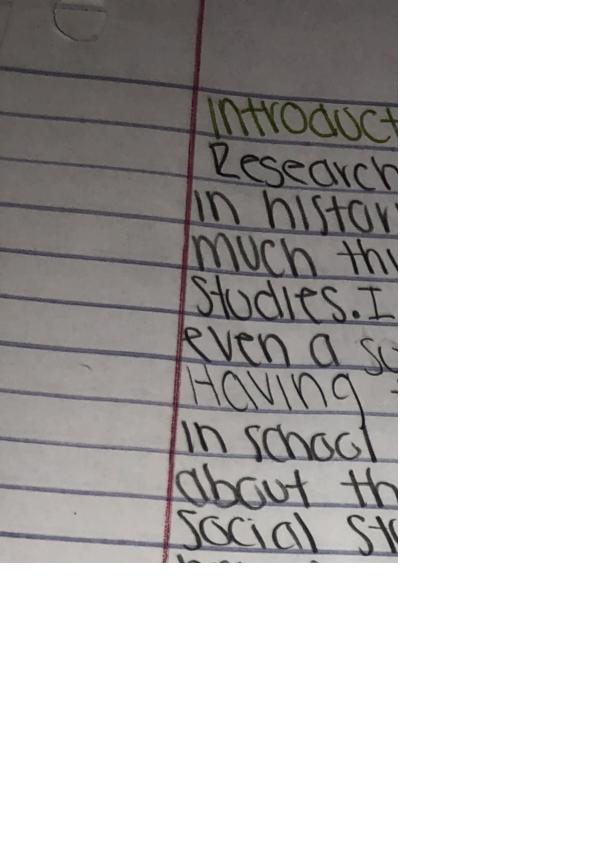 Introduct
Research
in histor
much thi
studies. I
even a sc
Having
in school
about th
social stu